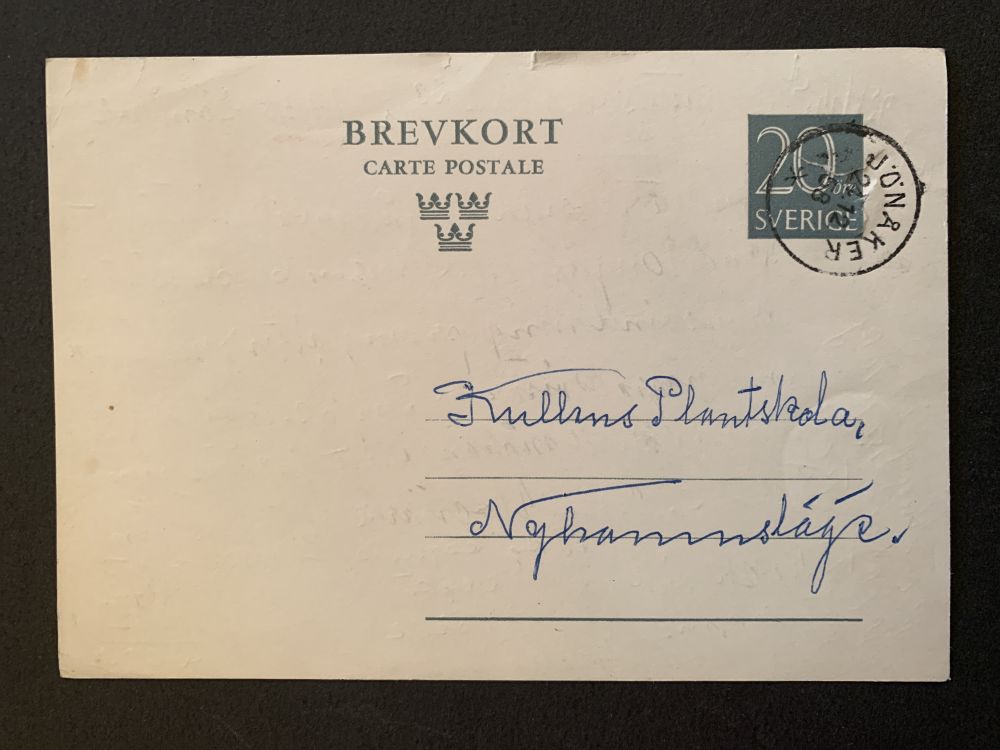 BREVKORT
CARTE POSTALE
20 ÖRE
SVERIGE
JÖNÅKER
22 12
Kullens Plantskola,
Nyhamnsläge.